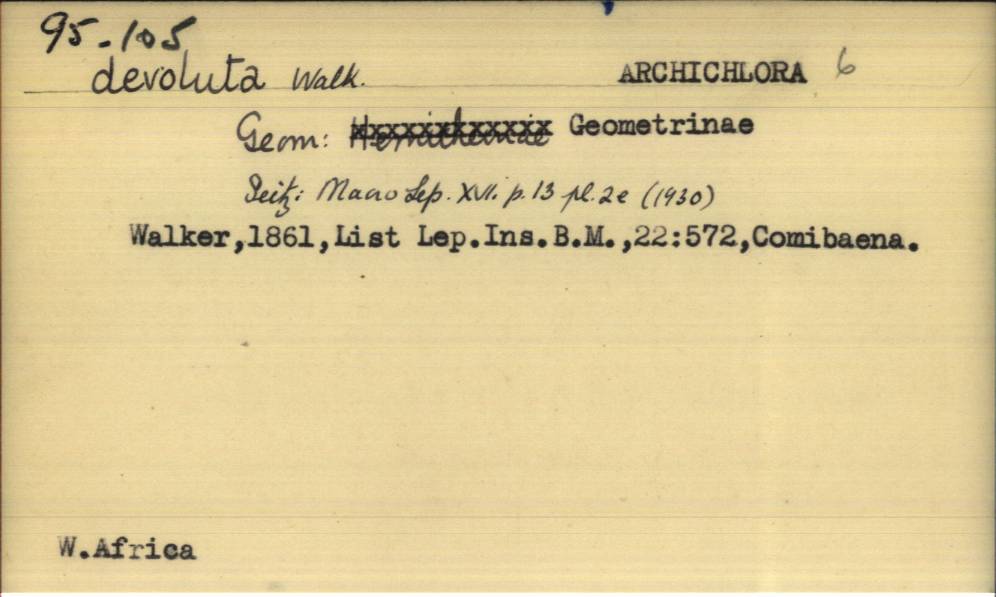 95-105
devoluta Walk. ARCHICHLORA 6
Geom: Hemitheinae Geometrinae
Seitz: Macro Lep. XVI. p. 13 pl. 2e (1930)
Walker,1861,List Lep.Ins.B.M.,22:572,Comibaena.
W.Africa